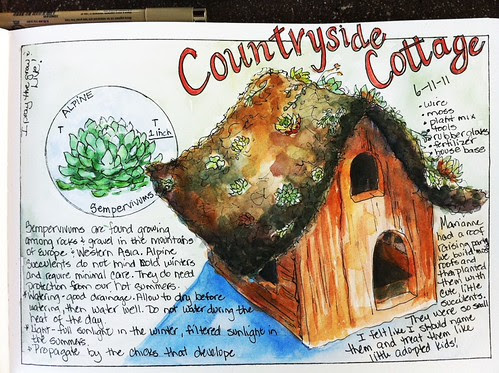 Countryside
Cottage
6-11-11
• wire
• moss
• plant mix
tools
rubber gloves
• fertilizer
• house base
ALPINE
T T
1 inch
Sempervivums
Sempervivums are found growing
among rocks & gravel in the mountains
of Europe & Western Asia. Alpine
Succulents do not mind cold winters
and require minimal care. They do need
protection from our hot summers.
* Watering - good drainage. Allow to dry before
watering, then water well. Do not water during the
heat of the day
* Light - full sonlight in the winter, filtered sunlight in
the summers.
* Propagate by the chicks that develope
Marianne
had a roof
raising party
we build moss
roofs and
than planted
them with
cute little
succulents.
They were so small
I felt like I should name
them and treat them like
little adopted kids!